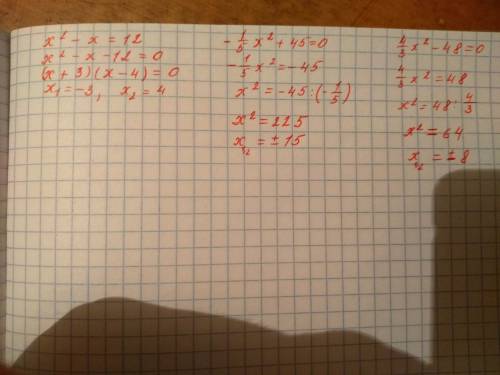 x² - x = 12
x² - x - 12 = 0
(x + 3)(x - 4) = 0
x₁ = -3, x₂ = 4
-1/5 x² + 45 = 0
-1/5 x² = -45
x² = -45 : (-1/5)
x² = 225
x₁,₂ = ± 15
x² - 48 = 0
x² = 48
x² = 48 : 4/3
x² = 64
x₁,₂ = ± 8